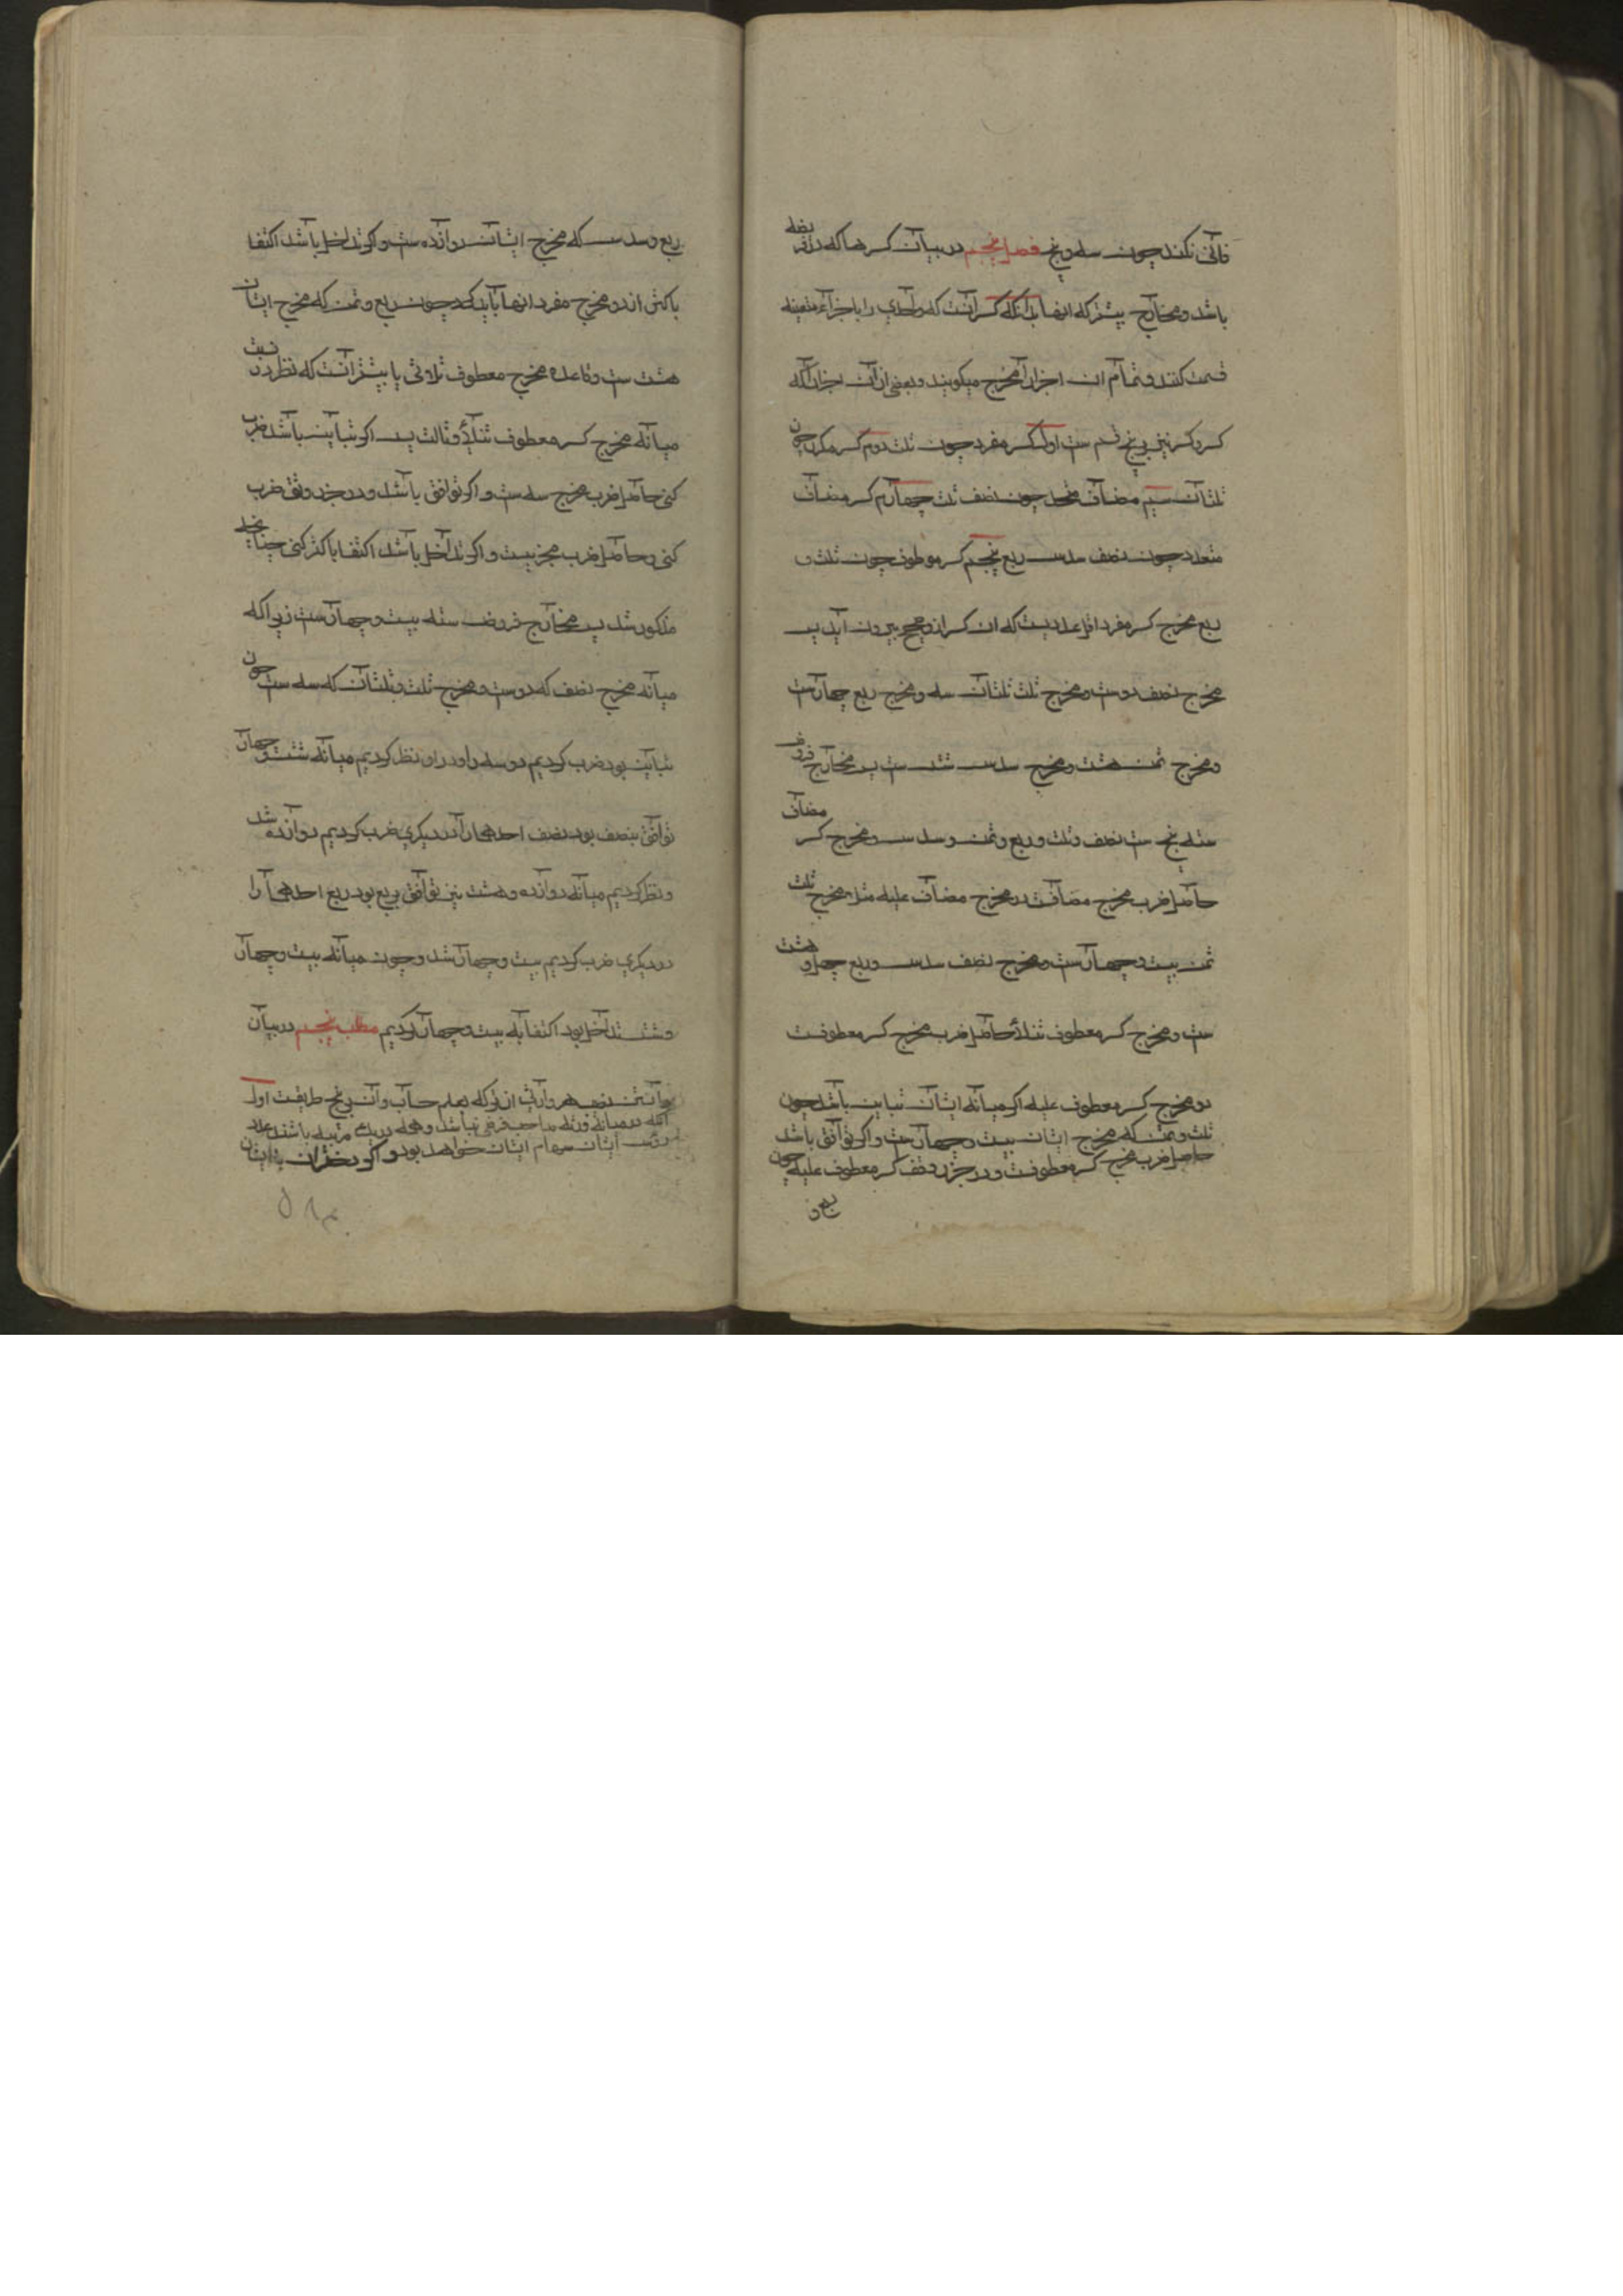 فانی نکند چون سه و پنج فصل پنجم در بیان کسرها که در فریضه
باشد و مخارج بیشتر که انها بدانکه کسر آنست که واحدی را با جزاء معینه
قسمت کنند و تمام ان اجزا را مخرج میکویند و بعضی از آن اجزا را که
کسر و کسر نیز بر پنج قسم ست اول کسر مفرد چون ثلث دوم کسر مکرر چون
ثلثان سیم مضاف متحد چون نصف ثلث چهارم کسر مضاف
متعدد چون نصف سدس ربع پنجم کسر موطوف چون ثلث و
ربع مخرج کسر مفرد اقل عددیست که ان کسر ازو صحیح بیرون اید پس
مخرج نصف دوست و مخرج ثلث ثلثان سه و مخرج ربع چهارست
و مخرج ثمن هشت و مخرج سدس شش ست پس مخارج فروض
سته پنج ست نصف و ثلث و ربع و ثمن و سدس و مخرج کسر مضاف
حاصل ضرب مخرج مضافست در مخرج مضاف علیه مثلا مخرج ثلث
ثمن بیست و چهارست و مخرج نصف سدس و ربع چهل و هشت
ست و مخرج کسر معطوف مثلا حاصل ضرب مخرج کسر معطوفست
دو مخرج کسر معطوف علیه اکر میانه ایشان تباین باشد چون
ثلث و ثمن که مخرج ایشان بیست و چهارست و اکر توافق باشد
حاصل ضرب مخرج کسر معطوفست و در جزء وفق کسر معطوف علیه چون
ربع و
ربع و سدس که مخرج ایشان دوازده ست و اکر تداخل باشد اکتفا
باکثر اند و مخرج مفرد انها باید کرد چون ربع و ثمن که مخرج ایشان
هشت ست و قاعده مخرج معطوف ثلاثی یا بیشتر انست که نظر در نسبت
میانه مخرج کسر معطوف مثلا و ثالث پس اکر تباین باشد ضرب
کنی حاصل ضرب مخرج سه ست و اکر توافق باشد و در جزء وفق ضرب
کنی و حاصل ضرب مخرجیست و اکر تداخل باشد اکتفا باکثر کنی چنانچه
مذکور شد پس مخارج فروض سته بیست و چهارست زیراکه
میانه مخرج نصف که دوست و مخرج ثلث و ثلثان که سه ست چون
تباین بود ضرب کردیم دو سه را و در او نظر کردیم میانه شش و چهار
توافق بنصف بود نصف احدهما را در دیکری ضرب کردیم دوازده شد
و نظر کردیم میانه دوازده و هشت نیز توافق بربع بود ربع احدهما را
در دیکری ضرب کردیم بیست و چهار شد و چون میانه بیست و چهار
و شش تداخل بود اکتفا به بیست و چهار کردیم مطلب پنجم در بیان
دانستن نصیب هر وارثی از ترکه بعلم حساب و آن بر پنج طریقست اول
آنکه در میانه ورثه صاحب فرضی نباشد و همه در یک مرتبه باشند عدد
رؤس ایشان سهام ایشان خواهد بود و اکر دختران با ایشان